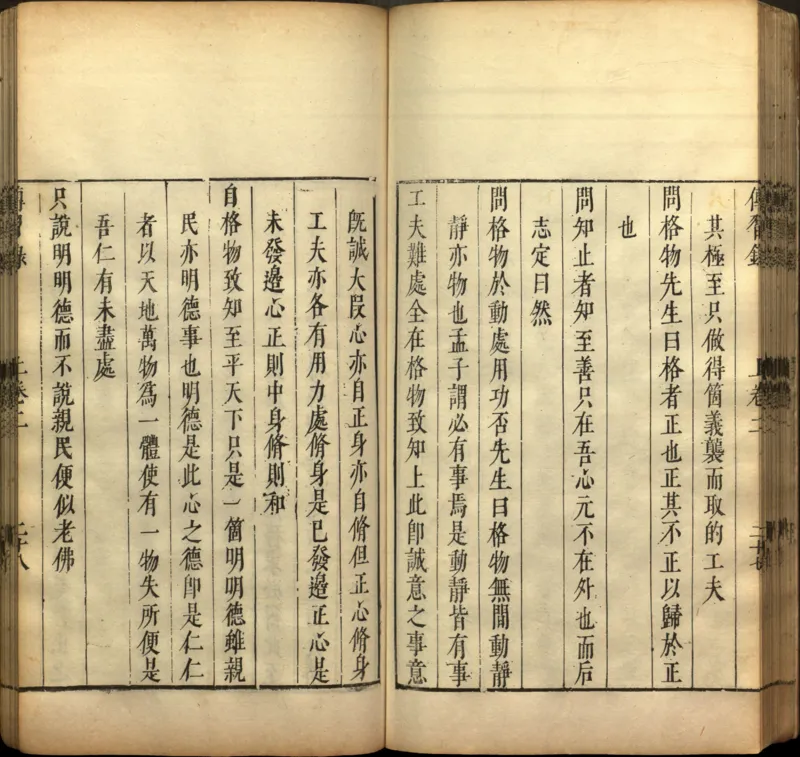 其極至只做得箇義襲而取的工夫
問格物先生曰格者正也正其不正以歸於正
也
問知止者知至善只在吾心元不在外也而后
志定曰然
問格物於動處用功否先生曰格物無間動靜
靜亦物也孟子謂必有事焉是動靜皆有事
工夫難處全在格物致知上此卽誠意之事意
旣誠大段心亦自正身亦自脩但正心脩身
工夫亦各有用力處脩身是已發邊正心是
未發邊心正則中身脩則和
自格物致知至平天下只是一箇明明德雖親
民亦明德事也明德是此心之德卽是仁仁
者以天地萬物爲一體使有一物失所便是
吾仁有未盡處
只說明明德而不說親民便似老佛